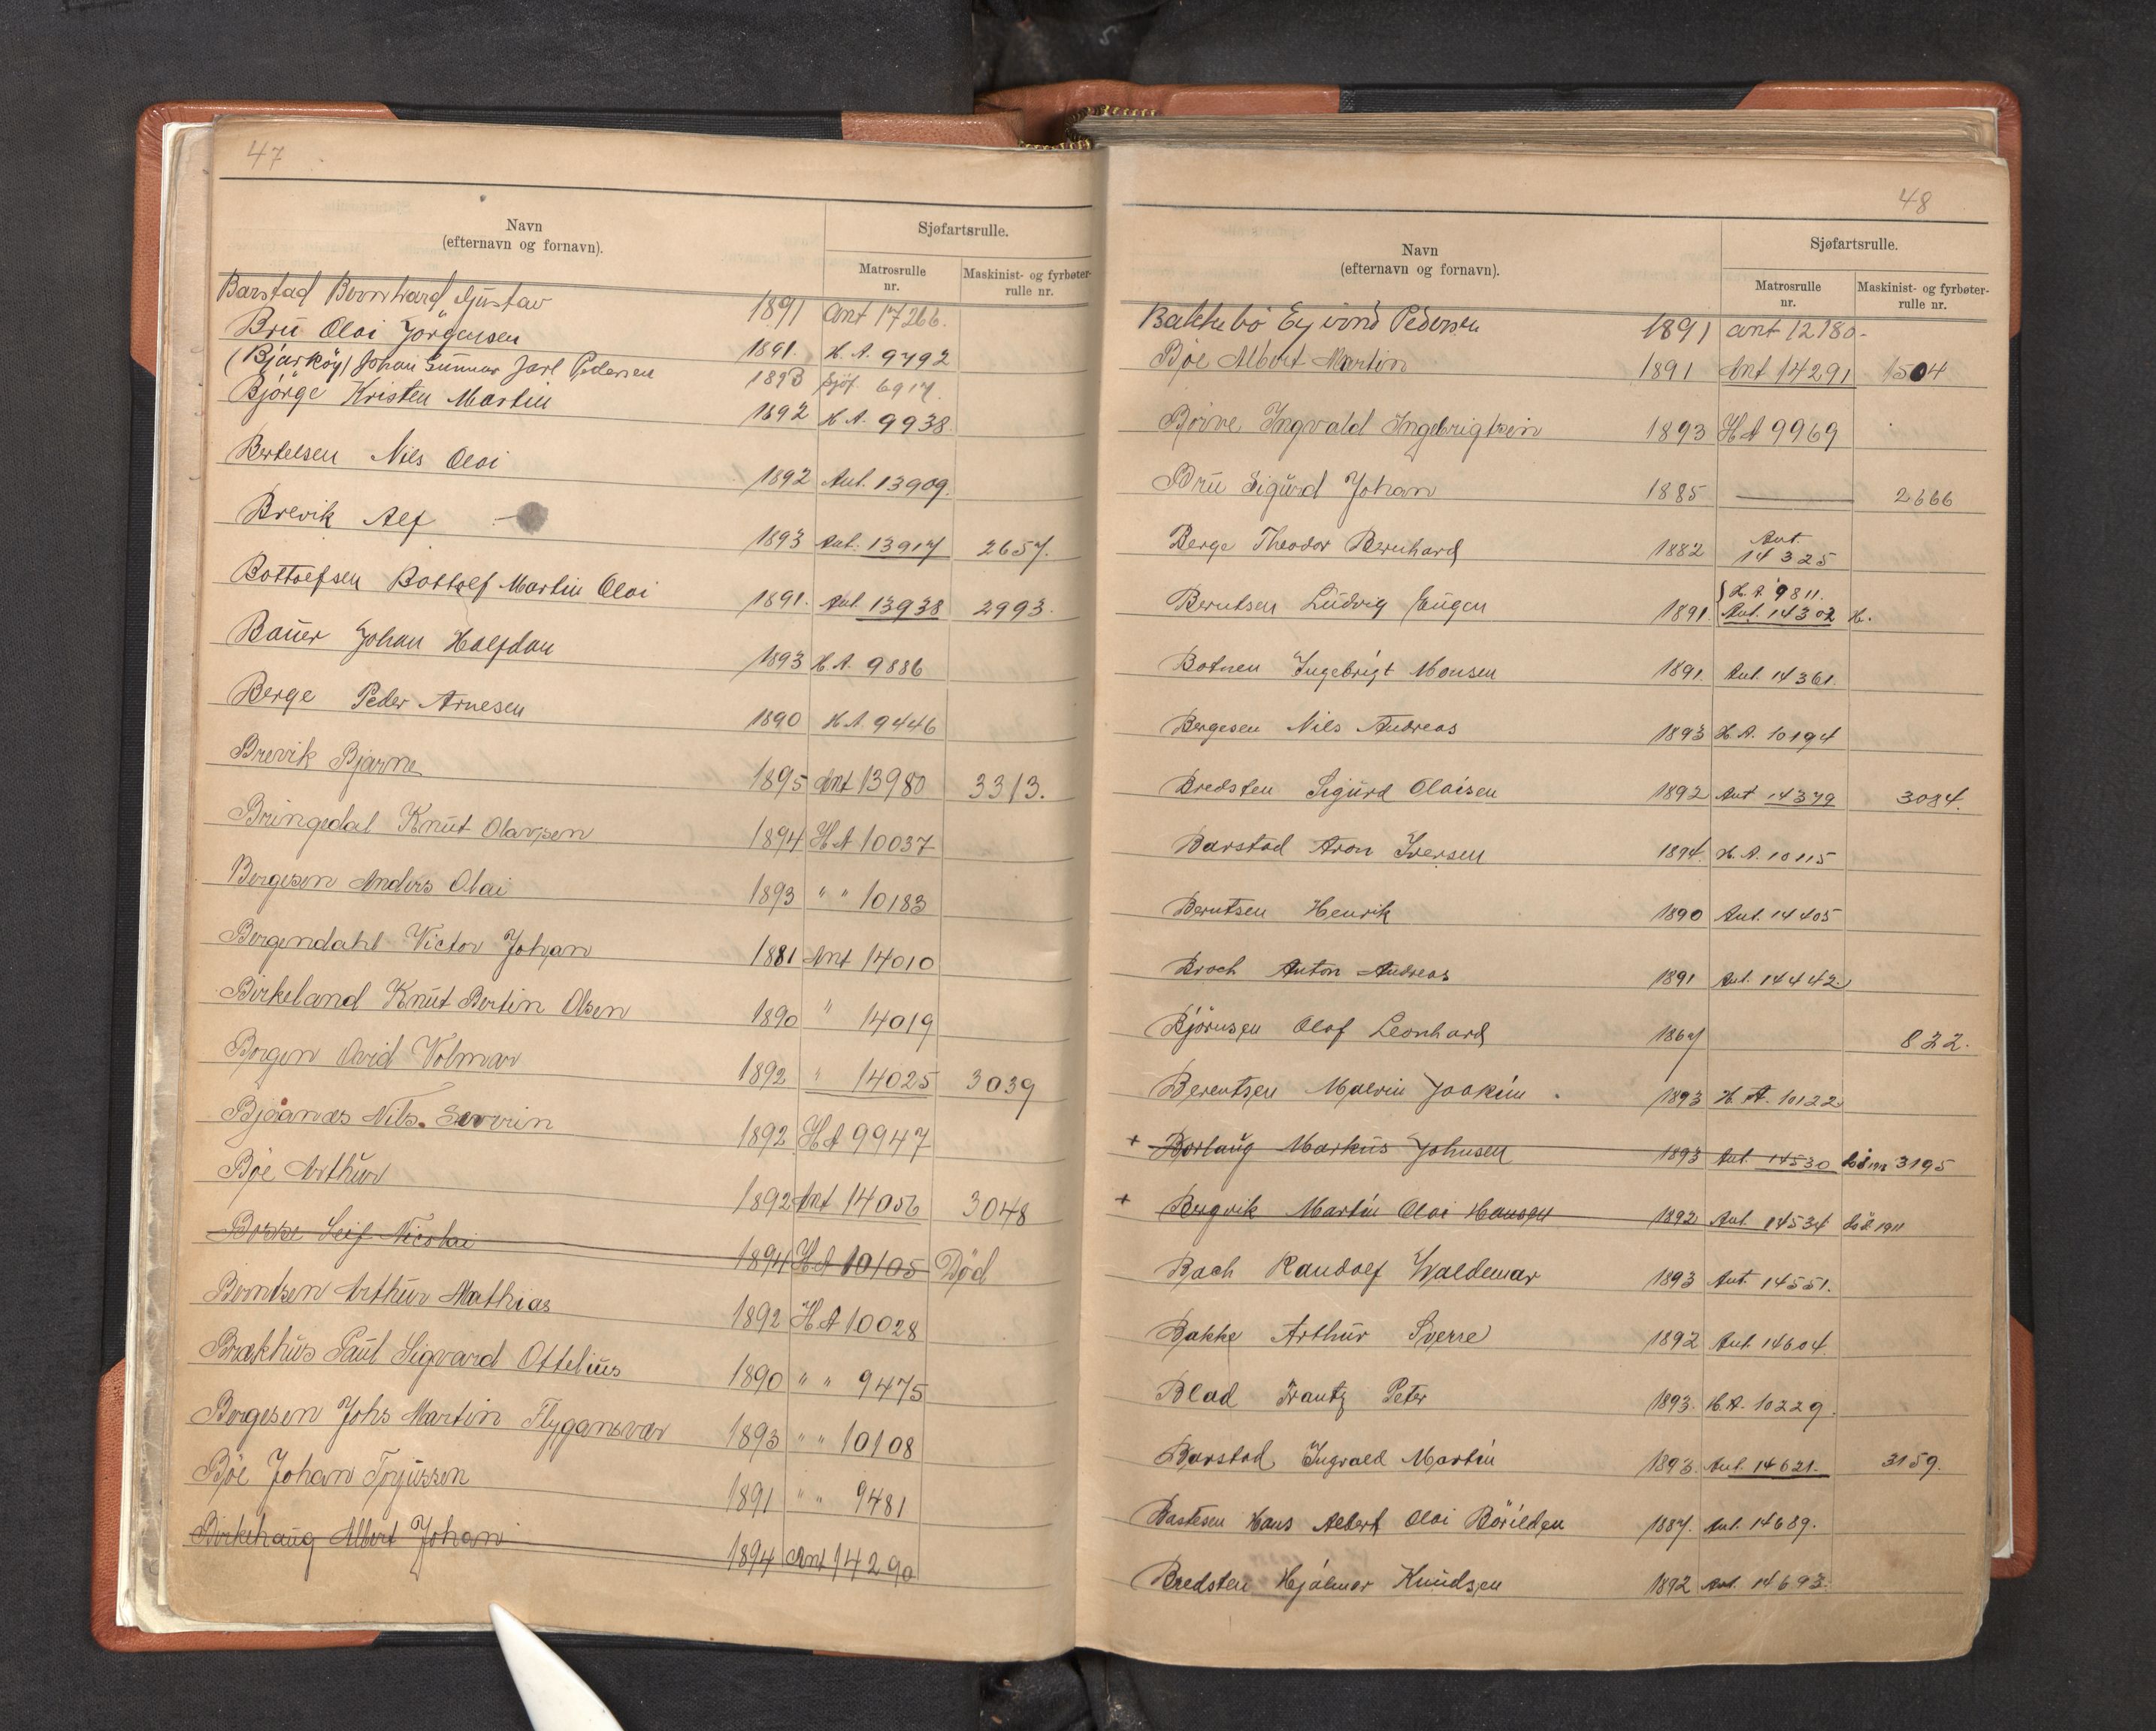 47
Navn
(efternavn og fornavn).
Sjøfartsrulle.
Matrosrulle
nr.
Maskinist- og fyrbøter-
rulle nr.
Barstad Bernhard Gustav 1891 Ant 17266.
Bru Olai Jørgensen 1891. H.A. 9792
(Bjarköy) Johan Gunnar Jarl Pedersen 1893 Sjöf. 6917.
Björge Kristen Martin 1892 H.A. 9938.
Bertelsen Nils Olai 1892 Ant. 13909.
Brevik Alf 1893 Ant. 13917 2657.
Bottolfsen Bottolf Martin Olai 1891. Ant. 13938 2993.
Bauer Johan Halfdan 1893 H.A. 9886
Berge Peder Arnesen 1890 H.A. 9446
Brevik Bjarne 1895 Ant 13980 3313.
Bringedal Knut Olavsen 1894 HA 10037
Bergesen Anders Olai 1893 " " 10183
Bergendahl Victor Johan 1881 Ant 14010
Birkeland Knut Bertin Olsen 1890 " 14019
Borgen Arvid Volmar 1892 " 14025 3039
Bjoanæs Nils. Severin 1892 HA 9947
Bøe Arthur 1892 Ant 14056 3048
Leif Nicolai 1894 HA 10105 Død
Berntsen Arthur Mathias 1892 HA 10028
Brækhus Paul Sigvard Ottelius 1890 " " 9475
Børgesen Johs Martin Flygansvær 1893 " " 10108
Bøe Johan 1891 " " 9481
Birkehaug Albert Johan 1894 Ant 14290
48
Navn
(efternavn og fornavn).
Sjøfartsrulle.
Matrosrulle
nr.
Maskinist- og fyrbøter-
rulle nr.
Bakkebö Eyvind Pedersen 1891 ant 12180-
Bøe Albert Martin 1891 Ant 14291 1504
Børve Ingvald Ingebrigtsen 1893 HA 9969
Bru Sigurd Johan 1885 — 2666
Berge Theodor Bernhard 1882 Ant. 14325
Berntsen Ludvig Eugen 1891 { H.A. 9811.
Ant. 14302 H.
Botnen Ingebrigt Monsen 1891. Ant. 14361.
Bergesen Nils Andreas 1893 H.A. 10194
Bredsten Sigurd Olaisen 1892 Ant 14379 3084.
Barstad Aron Iversen 1894. H.A. 10115
Berntsen Henrik 1890 Ant. 14405
Broch Anton Andreas 1891 Ant. 14442.
Björnsen Olaf Leonhard 1867 822.
Berentsen Malvin Joakim . 1893 H.A. 10122
+ Borlaug Markus Johnsen 1893 Ant. 14530 3195
+ Bergvik Martin Olai Hansen 1892 Ant. 14534 död 1911
Bach Randolf Waldemar 1893 Ant. 14551.
Bakke Arthur Sverre 1892 Ant. 14604.
Blad Frantz Peter 1893. H.A. 10229.
Barstad Ingvald Martin 1893. Ant. 14621. 3159.
Bastesen Hans Albert Olai 1887. Ant. 14689.
Bredsten Hjalmar Knudsen 1892 Ant. 14693.